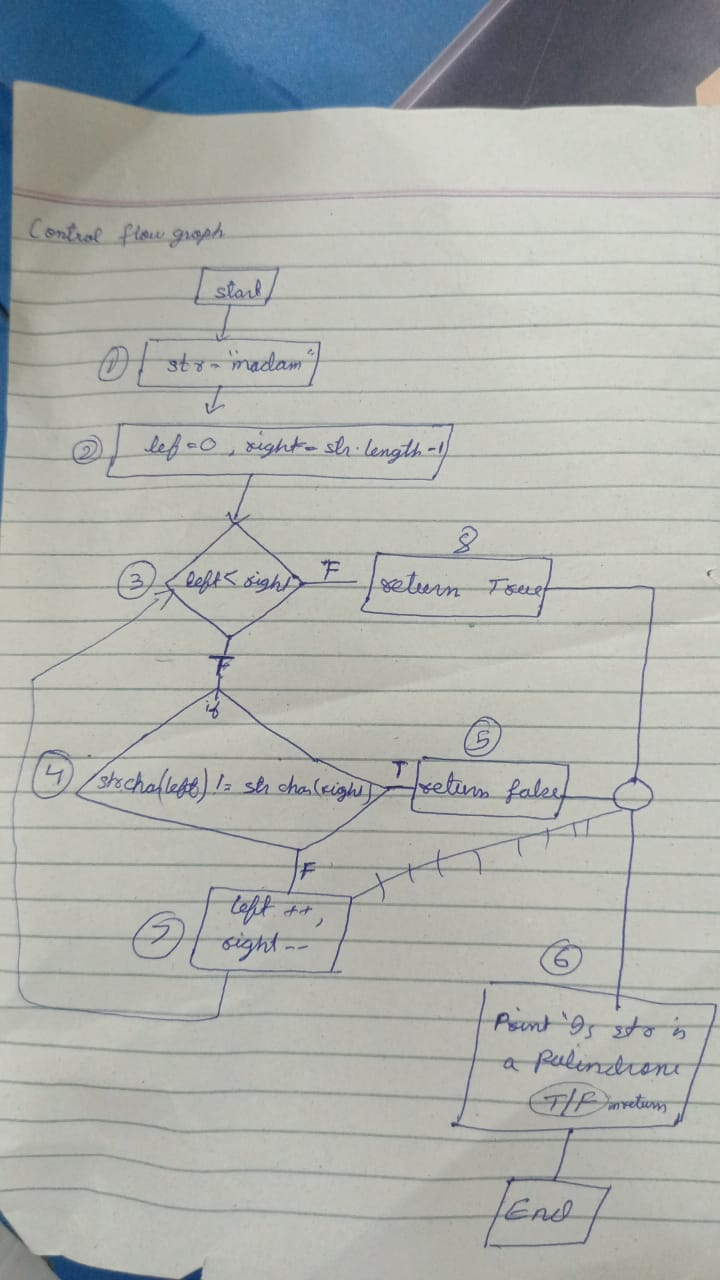 Control flow graph
start
① str = "madam"
② lef = 0, right = str.length - 1
③ left < right F 8 return True
T
if
④ str cha(left) != str char(right) T ⑤ return false
F
⑦ left ++,
right --
⑥
Print "Is str is
a Palindrome
T/F return
End